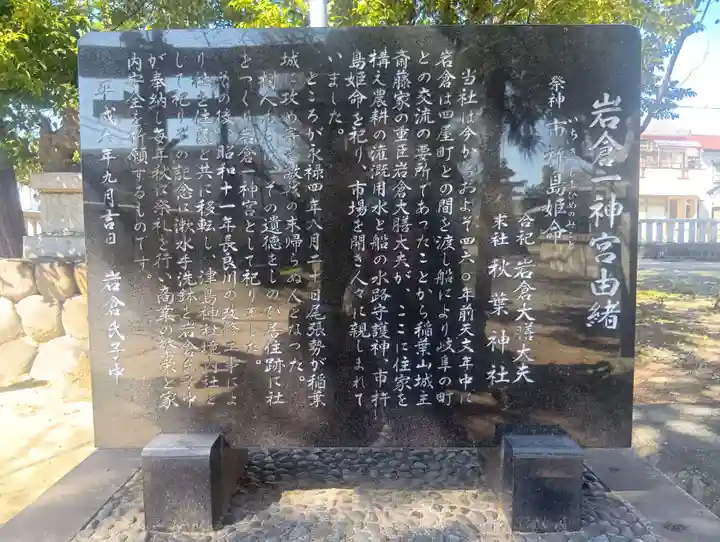 岩倉一神宮由緒
祭神 市杵島姫命
いちきしまひめのみこと
合祀 岩倉大膳大夫
末社 秋葉神社
当社は今からおよそ四六〇年前天文年中に
岩倉は四屋町との間を渡し船により岐阜の町
との交流の要所であったことから稲葉山城主
斎藤家の重臣岩倉大膳大夫が、ここに住家を
構え農耕の灌漑用水と船の水路守護神、市杵
島姫命を祀り、市場を開き人々に親しまれて
いました。
ところが永禄四年八月二十日尾張勢が稲葉
城に攻め 敵 の末帰らぬ人となった。
村人 その遺徳をしのび居住跡に社
をつくり岩倉一神宮として祀りました。
その後、昭和十一年長良川の改修工事によ
り 社を住民と共に移転し、津島神社境内社と
して祀り の記念に漱水手洗鉢を岩倉氏子中
が奉納し毎年秋に祭礼を行い、商業の繁栄と家
内安全を祈願するものです。
平成 年九月吉日 岩倉氏子中